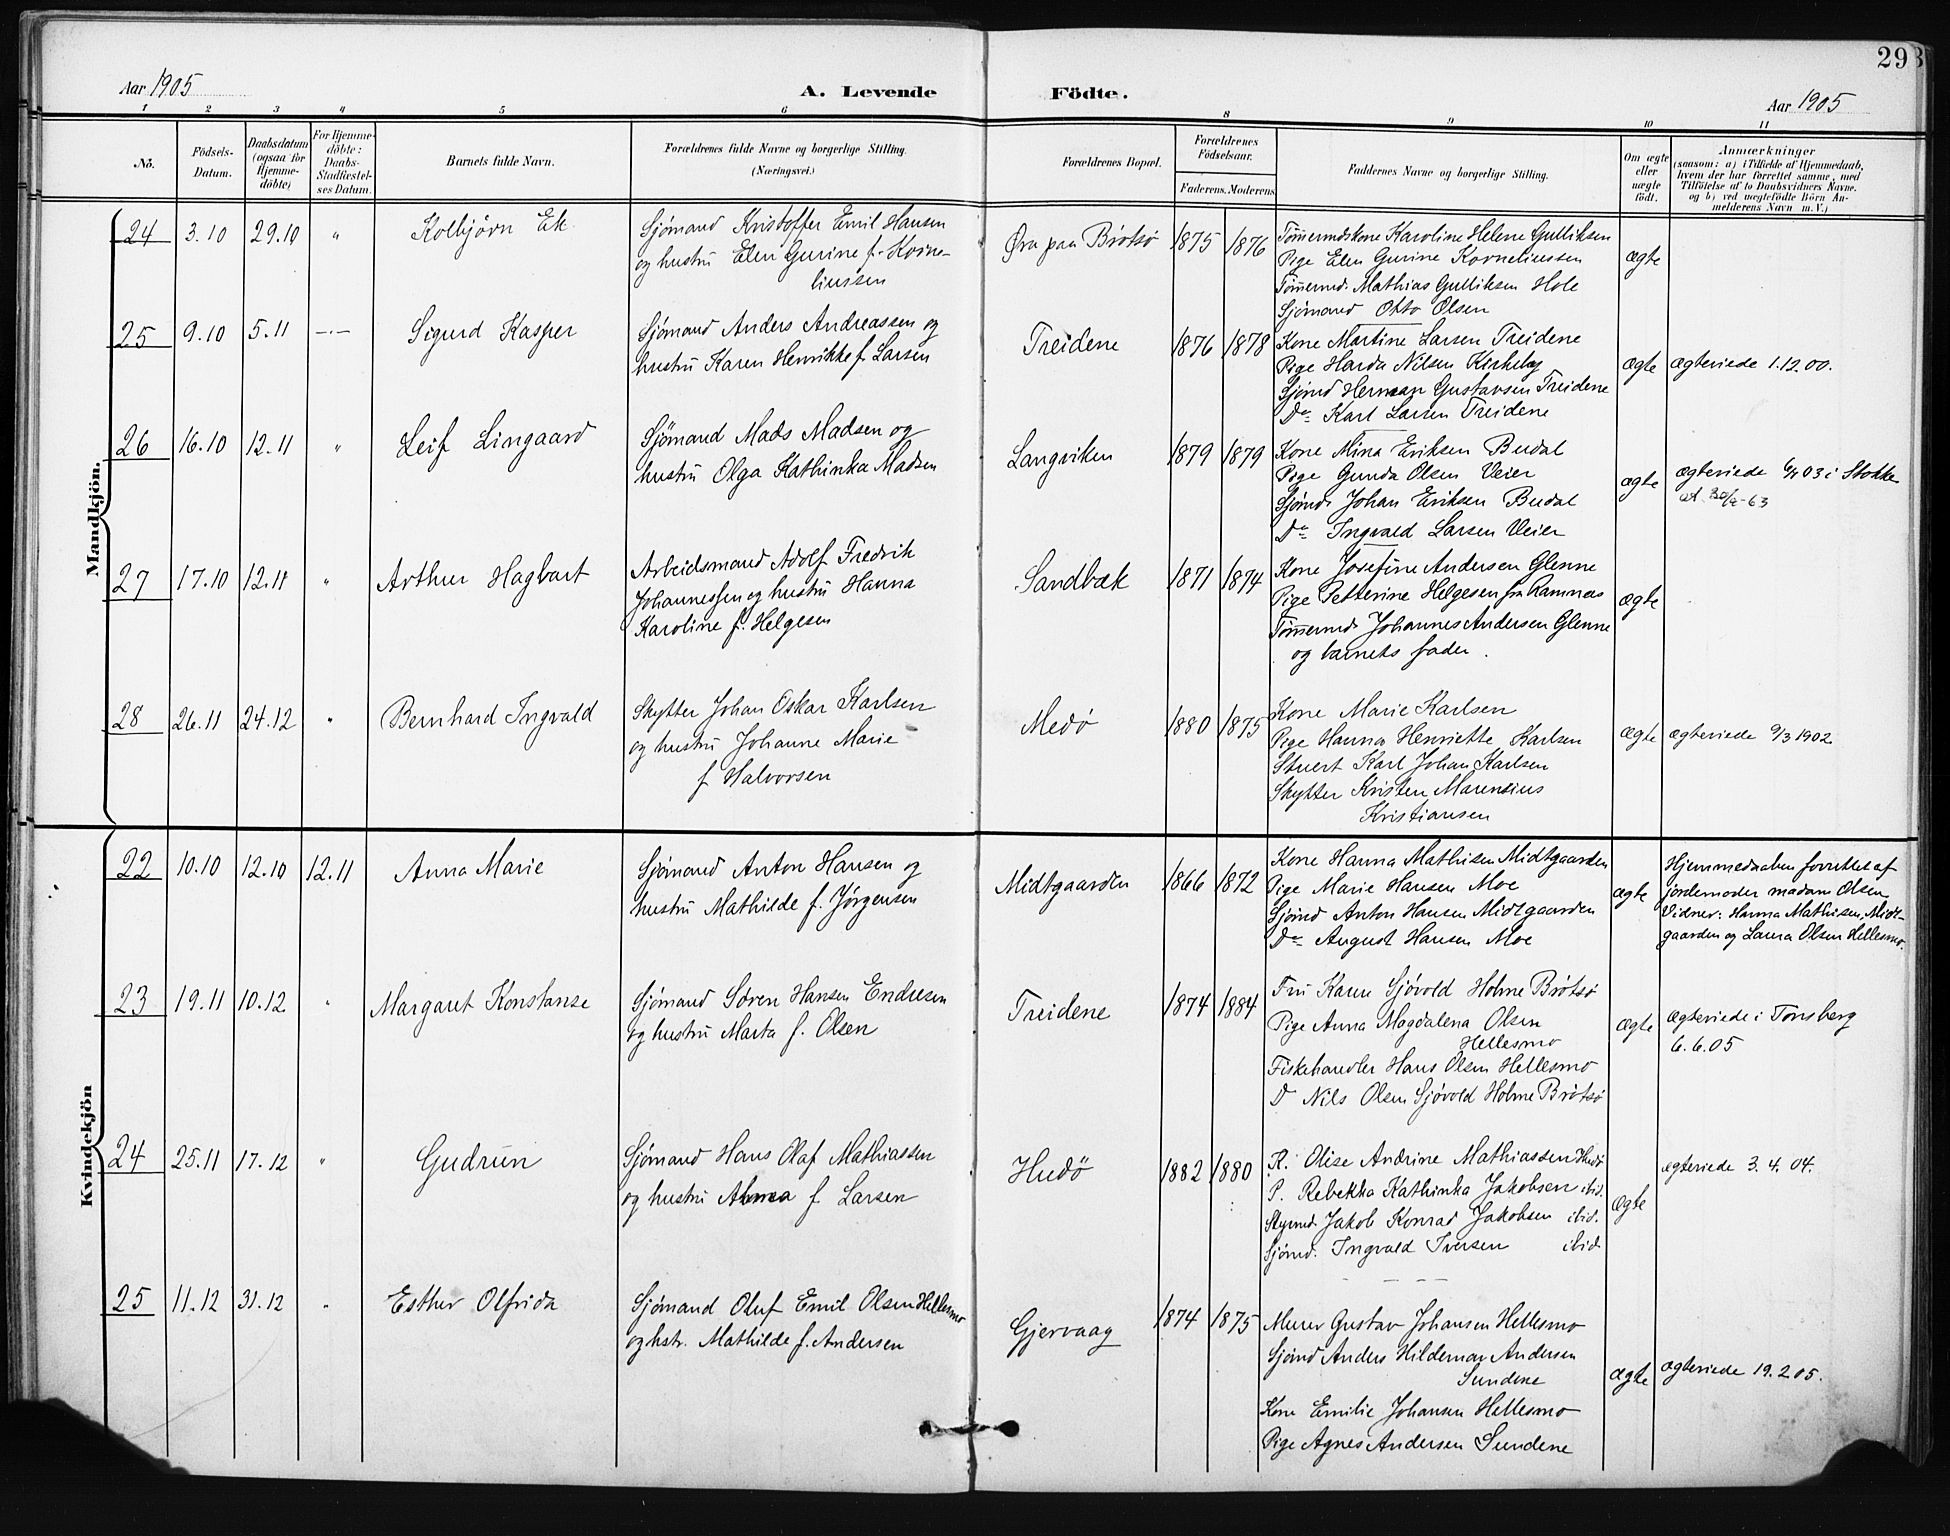 293
Aar 1905
A. Levende
Födte.
Aar 1905
1 2 3 4 5 6 8 9 10 11
No.
Födsels-Datum.
Daabsdatum (ogsaa for Hjemme-döbte)
For Hjemme-döbte: Daabs-Stadfæstel-ses Datum.
Barnets fulde Navn.
Forældrenes fulde Navne og borgerlige Stilling.
(Næringsvei.)
Forældrenes Bopæl.
Forældrenes Födselsaar.
Faderens. Moderens.
Faddernes Navne og borgerlige Stilling.
Om ægte eller uægte født.
Anmærkninger
(saasom: a) i Tilfælde af Hjemmedaab, hvem der har forrettet samme, med Tilföielse af to Daabsvidners Navne. og b) ved uægtefödte Börn An-melderens Navn m.V.)
Mandkjön.
24 3.10 29.10 " Kolbjörn Ek.
Sjömand Kristoffer Emil Hansen
og hustru Elen Gurine f. Korne-
liussen
Øra paa Brötsö 1875 1876
Tömermdskone Karoline Helene Gulliksen
Pige Elen Gurine Korneliussen
Tömermd. Mathias Gulliksen Hole
Sjömand Otto Olsen
ægte
25 9.10 5.11 -"- Sigurd Kasper
Sjömand Anders Andreassen og
hustru Karen Henrikke f. Larsen
Treidene 1876 1878
Kone Martine Larsen Treidene
Pige Harda Nilsen Kirkeby
Sjömd Herman Gustavsen Treidene
Do Karl Larsen Treidene
ægte ægteviede 1.12.00.
26 16.10 12.11 " Leif Lingaard
Sjömand Mads Madsen og
hustru Olga Kathinka Madsen
Langviken 1879 1879
Kone Mina Eriksen Budal
Pige Gunda Olsen Veier
Sjömd. Johan Eriksen Budal
Do Ingvald Larsen Veier
ægte ægteviede 03 i Stokke
27 17.10 12.11 " Arthur Hagbart
Arbeidsmand Adolf Fredrik
Johannessen og hustru Hanna
Karoline f. Helgesen
Sandbæk 1871 1874
Kone Josefine Andersen Glenne
Pige Petterine Helgesen fra Ramnæs
Tömermd. Johannes Andersen Glenne
og barnets fader.
ægte
28 26.11 24.12 " Bernhard Ingvald
Skytter Johan Oskar Karlsen
og hustru Johanne Marie
f Halvorsen
Medö 1880 1875
Kone Marie Karlsen
Pige Hanna Henriette Karlsen
Stuert Karl Johan Karlsen
Skytter Kristen Marensius
Kristiansen
ægte ægteviede 9/3 1902
Kvindekjön
22 10.10 12.10 12.11 Anna Marie
Sjömand Anton Hansen og
hustru Mathilde f. Jörgensen
Midtgaarden 1866 1872
Kone Hanna Mathisen Midtgaarden
Pige Marie Hansen Moe
Sjömd Anton Hansen Midtgaarden
Do August Hansen Moe
ægte
Hjemmedaaben forrettet af
jordemoder madam Olsen
Vidner: Hanna Mathisen, Midt-
gaarden og Laura Olsen Hellesmo.
23 19.11 10.12 " Margaret Konstanse
Sjömand Sören Hansen Endresen
og hustru Marta f. Olsen
Treidene 1874 1884
Fru Karen Sjövold Holme Brötsö
Pige Anna Magdalena Olsen
Hellesmo
Fiskehandler Hans Olsen Hellesmo
D Nils Olsen Sjövold Holme Brötsö
ægte ægteviede i Tønsberg
6.6.05
24 25.11 17.12 " Gudrun
Sjömand Hans Olaf Mathiassen
og hustru Alma f Larsen
Hudö 1882 1880
K. Olise Andrine Mathiassen Hudö
P. Rebekka Kathinka Jakobsen ibid.
Styrmd. Jakob Konrad Jakobsen ibid.
Sjömd. Ingvald Iversen ibid.
ægte ægteviede 3.4.04.
25 11.12 31.12 " Esther Olfrida
Sjömand Oluf Emil Olsen Hellesmo
og hstr. Mathilde f. Andersen
Gjervaag 1874 1875
Murer Gustav Johansen Hellesmo
Sjömd Anders Hildemar Andersen
Sundene
Kone Emilie Johansen Hellesmo
Pige Agnes Andersen Sundene
ægte ægteviede 19.2.05.